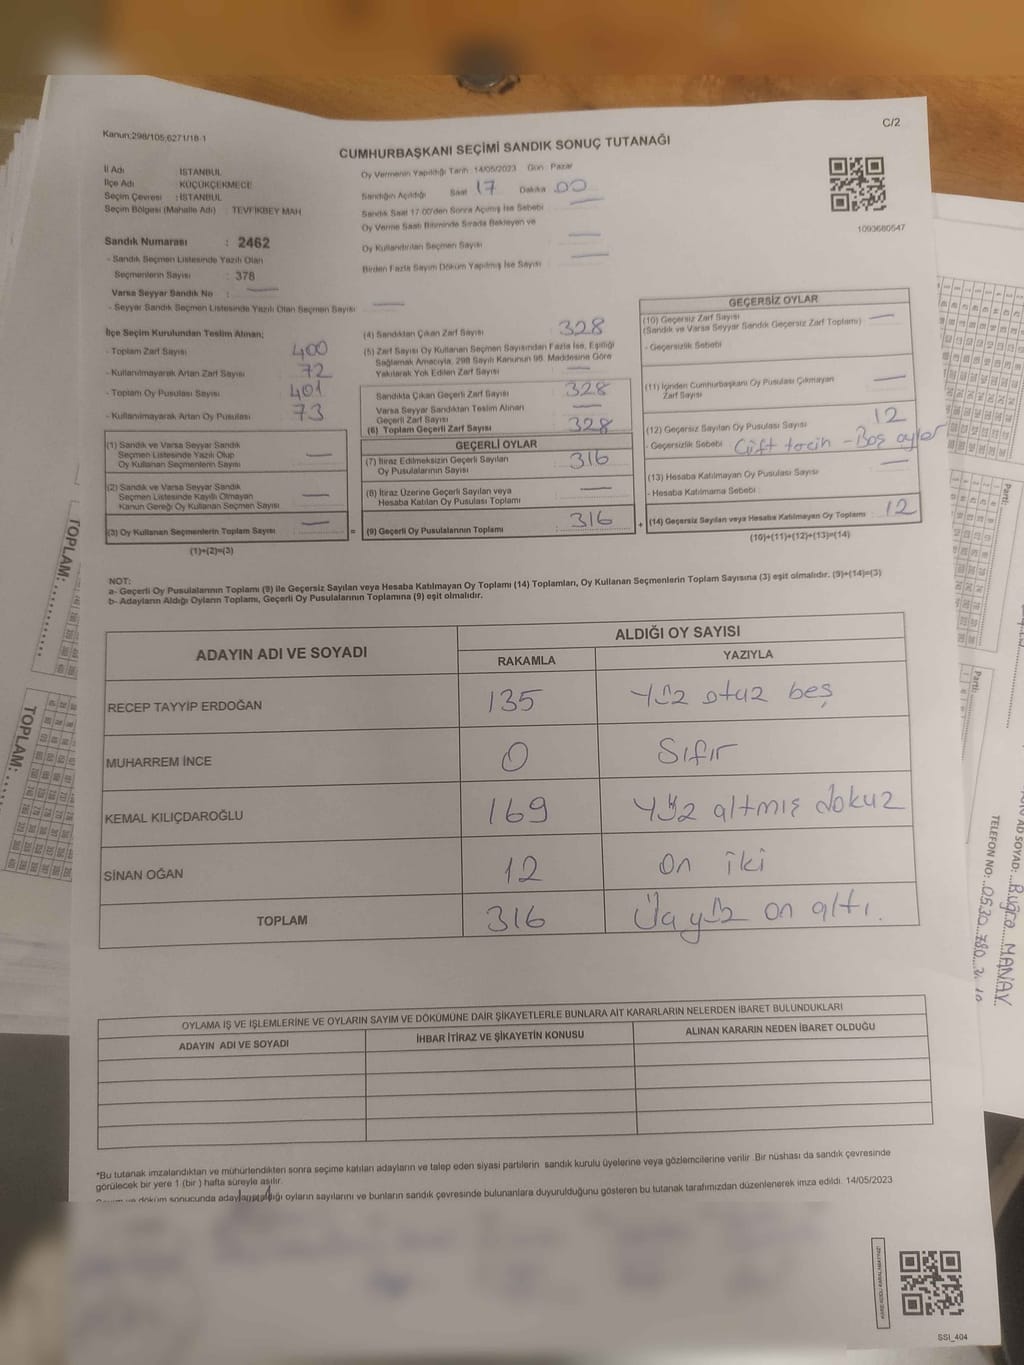 Kanun:298/105;6271/18-1
C/2
CUMHURBAŞKANI SEÇİMİ SANDIK SONUÇ TUTANAĞI
İl Adı İSTANBUL
İlçe Adı KÜÇÜKÇEKMECE
Seçim Çevresi : İSTANBUL
Seçim Bölgesi (Mahalle Adı) : TEVFİKBEY MAH
Sandık Numarası : 2462
- Sandık Seçmen Listesinde Yazılı Olan
Seçmenlerin Sayısı : 378
Varsa Seyyar Sandık No :
- Seyyar Sandık Seçmen Listesinde Yazılı Olan Seçmen Sayısı
Oy Vermenin Yapıldığı Tarih :14/05/2023 Gün : Pazar
Sandığın Açıldığı Saat 17 Dakika 00
Sandık Saat 17.00'den Sonra Açılmış İse Sebebi
Oy Verme Saati Bitiminde Sırada Bekleyen ve
Oy Kullandırılan Seçmen Sayısı
Birden Fazla Sayım Döküm Yapılmış İse Sayısı
1093680547
İlçe Seçim Kurulundan Teslim Alınan;
- Toplam Zarf Sayısı 400
- Kullanılmayarak Artan Zarf Sayısı 72
- Toplam Oy Pusulası Sayısı 401
- Kullanılmayarak Artan Oy Pusulası 73
(1) Sandık ve Varsa Seyyar Sandık
Seçmen Listesinde Yazılı Olup
Oy Kullanan Seçmenlerin Sayısı
(2) Sandık ve Varsa Seyyar Sandık
Seçmen Listesinde Kayıtlı Olmayan
Kanun Gereği Oy Kullanan Seçmen Sayısı
(3) Oy Kullanan Seçmenlerin Toplam Sayısı =
(1)+(2)=(3)
(4) Sandıktan Çıkan Zarf Sayısı 328
(5) Zarf Sayısı Oy Kullanan Seçmen Sayısından Fazla İse, Eşitliği
Sağlamak Amacıyla, 298 Sayılı Kanunun 98. Maddesine Göre
Yakılarak Yok Edilen Zarf Sayısı
Sandıkta Çıkan Geçerli Zarf Sayısı 328
Varsa Seyyar Sandıktan Teslim Alınan
Geçerli Zarf Sayısı
(6) Toplam Geçerli Zarf Sayısı 328
GEÇERLİ OYLAR
(7) İtiraz Edilmeksizin Geçerli Sayılan
Oy Pusulalarının Sayısı 316
(8) İtiraz Üzerine Geçerli Sayılan veya
Hesaba Katılan Oy Pusulası Toplamı
(9) Geçerli Oy Pusulalarının Toplamı : 316 +
GEÇERSİZ OYLAR
(10) Geçersiz Zarf Sayısı
(Sandık ve Varsa Seyyar Sandık Geçersiz Zarf Toplamı)
- Geçersizlik Sebebi
(11) İçinden Cumhurbaşkanı Oy Pusulası Çıkmayan
Zarf Sayısı
(12) Geçersiz Sayılan Oy Pusulası Sayısı 12
- Geçersizlik Sebebi Çift tercih - Boş oylar
(13) Hesaba Katılmayan Oy Pusulası Sayısı
- Hesaba Katılmama Sebebi
(14) Geçersiz Sayılan veya Hesaba Katılmayan Oy Toplamı : 12
(10)+(11)+(12)+(13)=(14)
NOT:
a- Geçerli Oy Pusulasının Toplamı (9) ile Geçersiz Sayılan veya Hesaba Katılmayan Oy Toplamı (14) Toplamları, Oy Kullanan Seçmenlerin Toplam Sayısına (3) eşit olmalıdır. (9)+(14)=(3)
b- Adayların Aldığı Oyların Toplamı, Geçerli Oy Pusulalarının Toplamına (9) eşit olmalıdır.
ADAYIN ADI VE SOYADI ALDIĞI OY SAYISI
RAKAMLA YAZIYLA
RECEP TAYYİP ERDOĞAN 135 Yüz otuz beş
MUHARREM İNCE 0 Sıfır
KEMAL KILIÇDAROĞLU 169 Yüz altmış dokuz
SİNAN OĞAN 12 On iki
TOPLAM 316 Üçyüz on altı.
OYLAMA İŞ VE İŞLEMLERİNE VE OYLARIN SAYIM VE DÖKÜMÜNE DAİR ŞİKAYETLERLE BUNLARA AİT KARARLARIN NELERDEN İBARET BULUNDUKLARI
ADAYIN ADI VE SOYADI İHBAR İTİRAZ VE ŞİKAYETİN KONUSU ALINAN KARARIN NEDEN İBARET OLDUĞU
*Bu tutanak imzalandıktan ve mühürlendikten sonra seçime katılan adayların ve talep eden siyasi partilerin sandık kurulu üyelerine veya gözlemcilerine verilir .Bir nüshası da sandık çevresinde
görülecek bir yere 1 (bir ) hafta süreyle asılır.
döküm sonucunda oyların sayılarını ve bunların sandık çevresinde bulunanlara duyurulduğunu gösteren bu tutanak tarafımızdan düzenlenerek imza edildi. 14/05/2023
SSI_404
TOPLAM:
TOPLAM:
Parti:
Parti:
AD SOYAD: Buğra MANAV
TELEFON NO: 0530 780